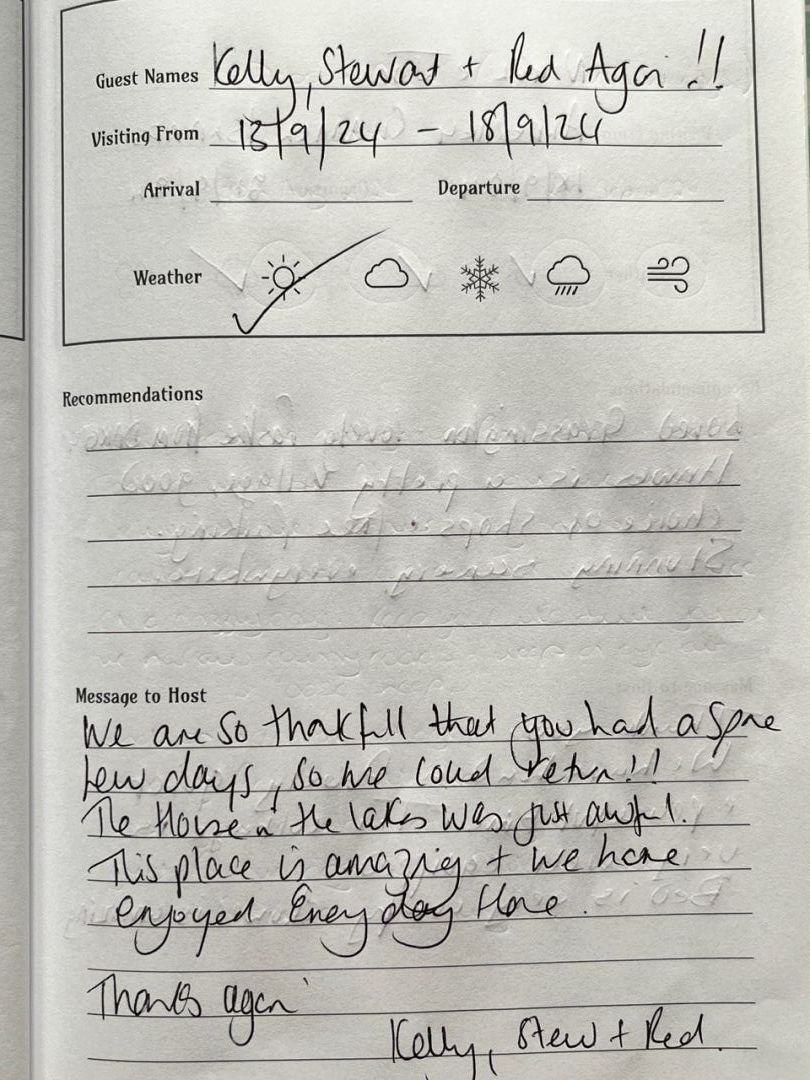 Guest Names Kelly, Stewart + Red Again !!
Visiting From 13/9/24 - 18/9/24
Arrival Departure
Weather
Recommendations
Message to Host
We are so thakfull that you had a spare
few days, so we coud return!!
The House in the lakes was just awful.
This place is amazing + we have
enjoyed Every day Here.
Thanks again
Kelly, Stew + Red.